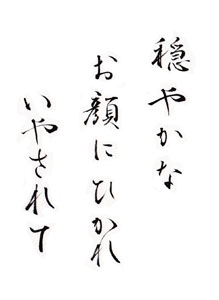 穏やかな
お顔にひかれ
いやされて